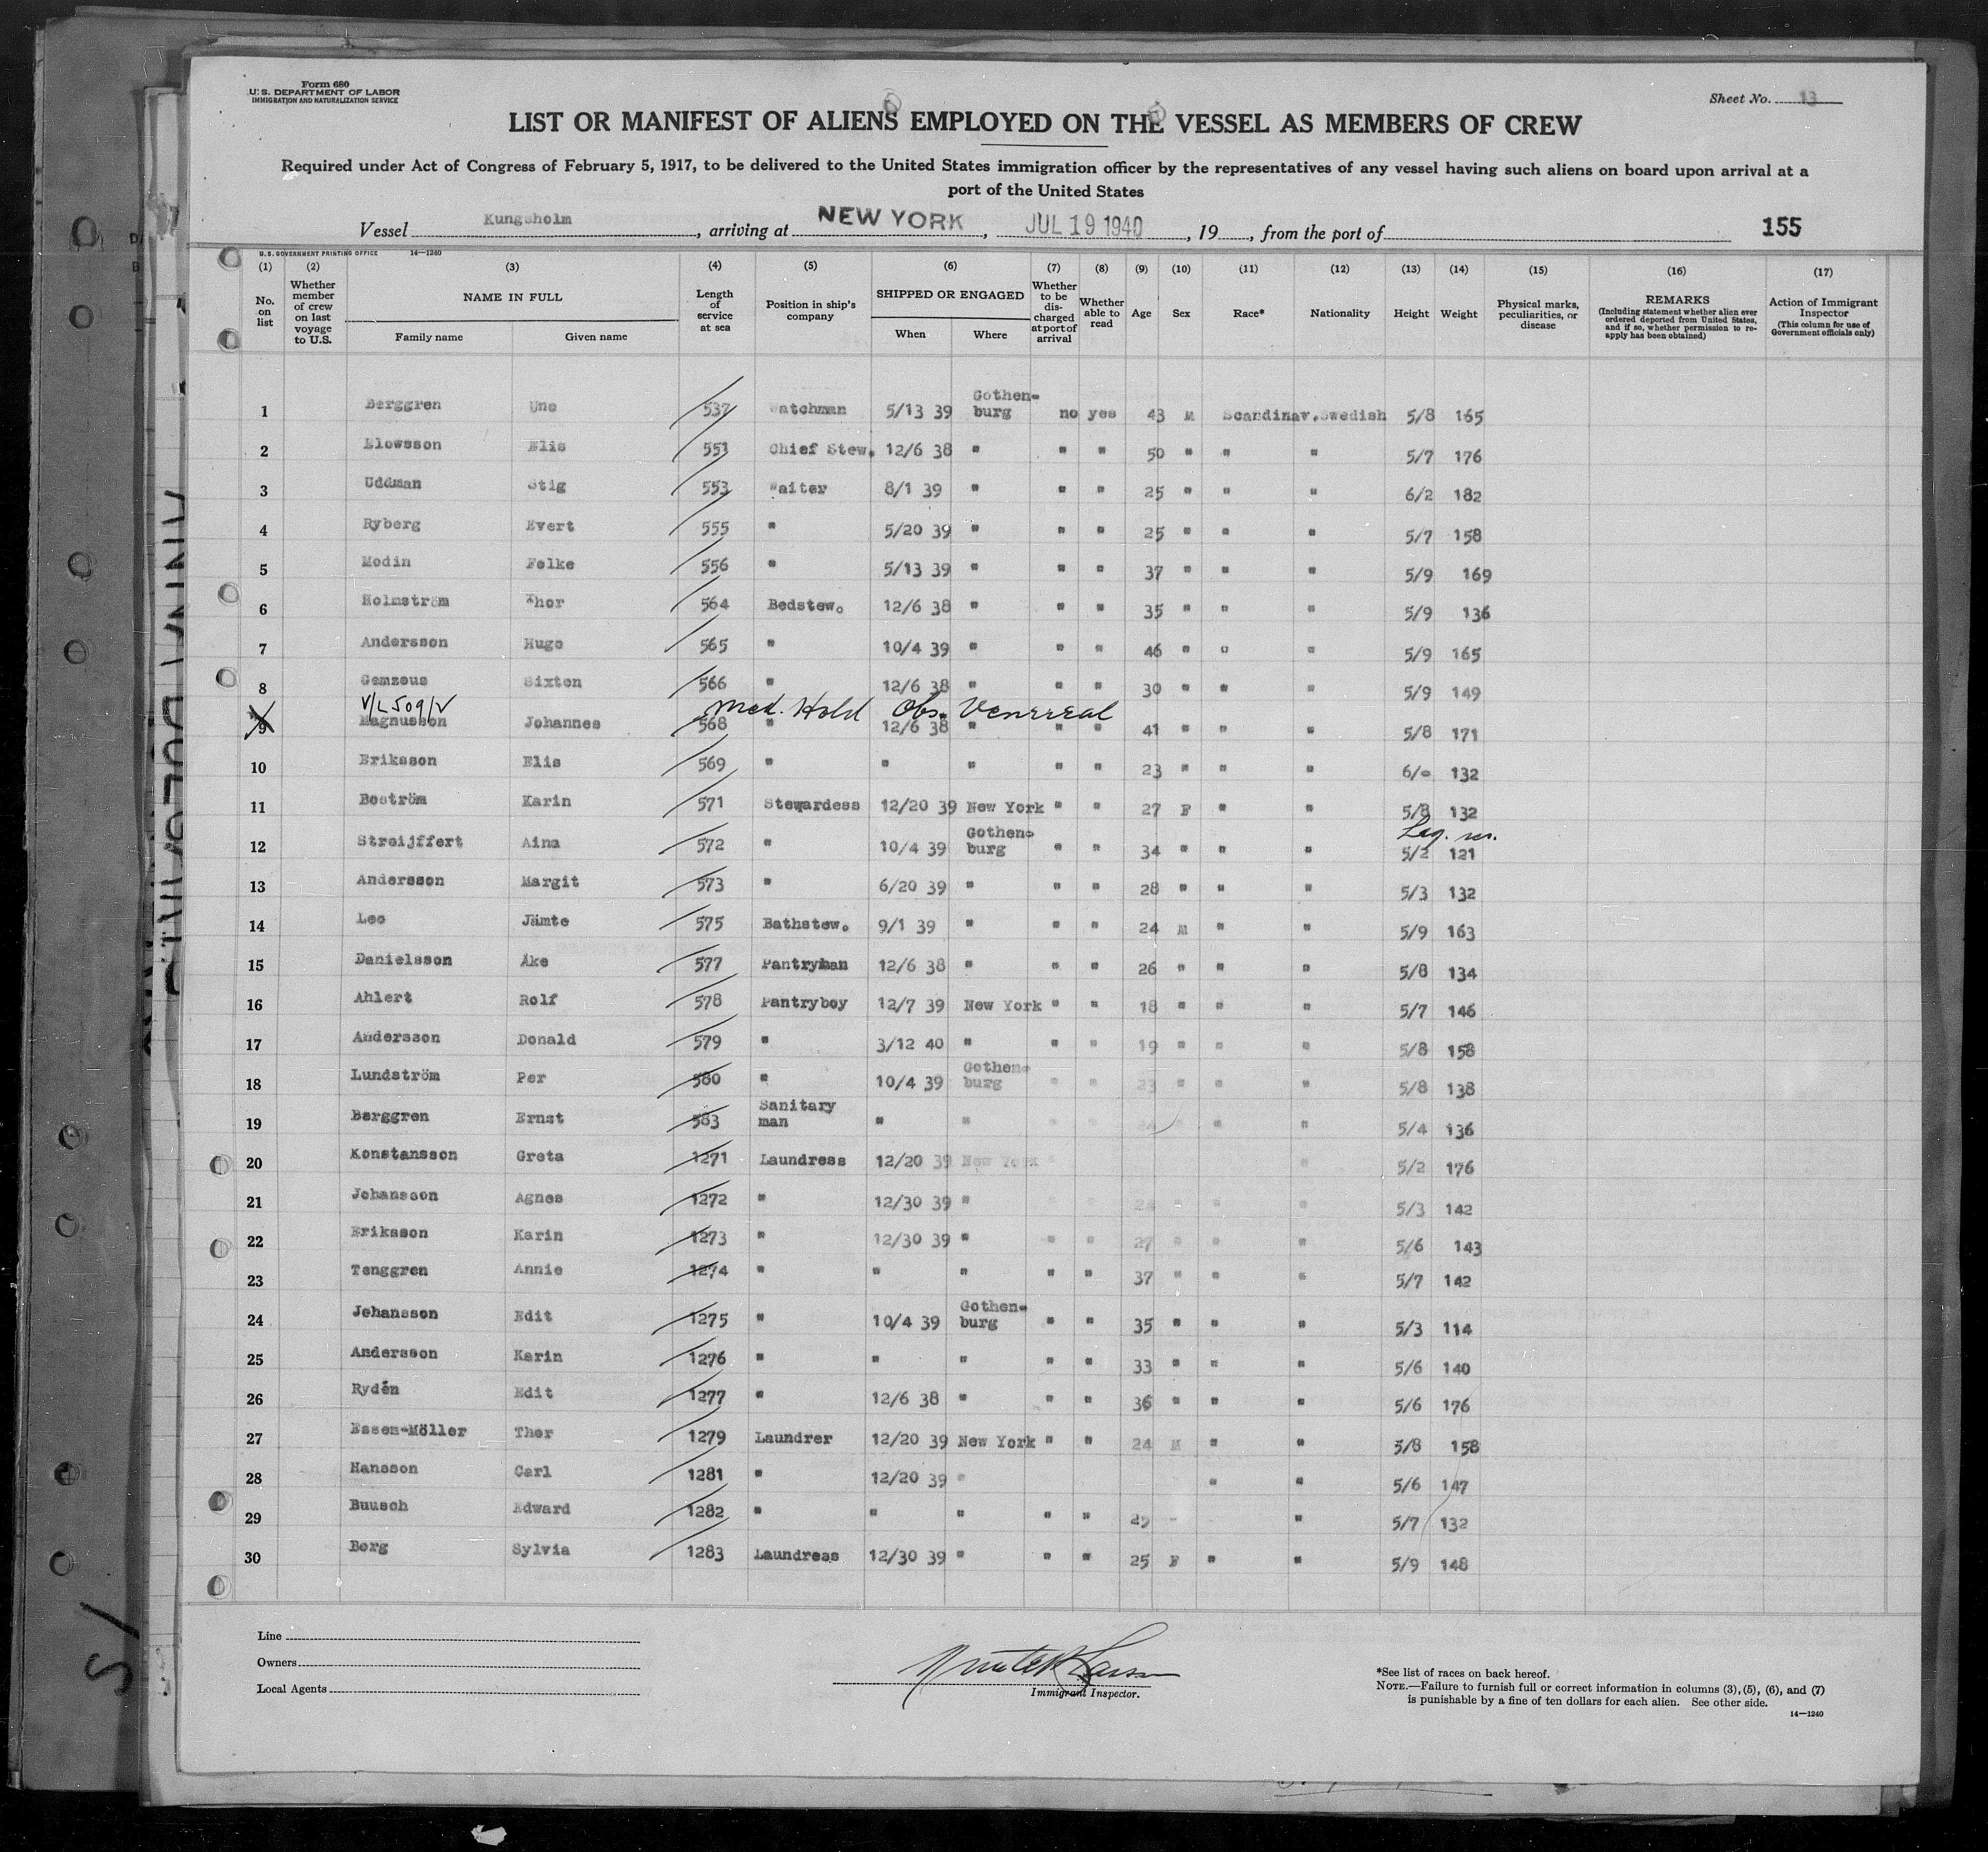 Form 680
U. S. DEPARTMENT OF LABOR
IMMIGRATION AND NATURALIZATION SERVICE
Sheet No. 13
LIST OR MANIFEST OF ALIENS EMPLOYED ON THE VESSEL AS MEMBERS OF CREW
Required under Act of Congress of February 5, 1917, to be delivered to the United States immigration officer by the representatives of any vessel having such aliens on board upon arrival at a
port of the United States
Vessel Kungsholm, arriving at NEW YORK, JUL 19 1940, 19, from the port of 155
U. S. GOVERNMENT PRINTING OFFICE 14—1240
(1) (2) (3) (4) (5) (6) (7) (8) (9) (10) (11) (12) (13) (14) (15) (16) (17)
No. on list
Whether member of crew on last voyage to U.S.
NAME IN FULL
Family name Given name
Length of service at sea
Position in ship's company
SHIPPED OR ENGAGED
When Where
Whether to be discharged at port of arrival
Whether able to read
Age Sex Race* Nationality Height Weight
Physical marks, peculiarities, or disease
REMARKS
(Including statement whether alien ever ordered deported from United States, and if so, whether permission to reapply has been obtained)
Action of Immigrant Inspector
(This column for use of Government officials only)
1 Berggren Uno 537 Watchman 5/13 39 Gothenburg no yes 43 M Scandinav. Swedish 5/8 165
2 Elowsson Elis 551 Chief Stew. 12/6 38 " " " 50 " " " 5/7 176
3 Uddman Stig 553 Waiter 8/1 39 " " " 25 " " " 6/2 182
4 Ryberg Evert 555 " 5/20 39 " " " 25 " " " 5/7 158
5 Modin Folke 556 " 5/13 39 " " " 37 " " " 5/9 169
6 Holmström Thor 564 Bedstew. 12/6 38 " " " 35 " " " 5/9 136
7 Andersson Hugo 565 " 10/4 39 " " " 46 " " " 5/9 165
8 Gemzeus Sixten 566 " 12/6 38 " " " 30 " " " 5/9 149
V/L 509/V Med. Hold Obs. Venereal
9 Magnusson Johannes 568 " 12/6 38 " " " 41 " " " 5/8 171
10 Eriksson Elis 569 " " " " " 23 " " " 6/- 132
11 Boström Karin 571 Stewardess 12/20 39 New York " " 27 F " " 5/8 132
12 Streijffert Aina 572 " 10/4 39 Gothenburg " " 34 " " " 5/2 121
13 Andersson Margit 573 " 6/20 39 " " " 28 " " " 5/3 132
14 Leo Jämte 575 Bathstew. 9/1 39 " " " 24 M " " 5/9 163
15 Danielsson Åke 577 Pantryman 12/6 38 " " " 26 " " " 5/8 134
16 Ahlert Rolf 578 Pantryboy 12/7 39 New York " " 18 " " " 5/7 146
17 Andersson Donald 579 " 3/12 40 " " " 19 " " " 5/8 158
18 Lundström Per 580 " 10/4 39 Gothenburg " " 23 " " " 5/8 138
19 Berggren Ernst 583 Sanitary man " " " " " " 5/4 136
20 Konstansson Greta 1271 Laundress 12/20 39 New York " " 5/2 176
21 Johansson Agnes 1272 " 12/30 39 " " " " " " 5/3 142
22 Eriksson Karin 1273 " 12/30 39 " " " 27 " " " 5/6 143
23 Tenggren Annie 1274 " " " " " 37 " " " 5/7 142
24 Johansson Edit 1275 " 10/4 39 Gothenburg " " 35 " " " 5/3 114
25 Andersson Karin 1276 " " " " " 33 " " " 5/6 140
26 Rydén Edit 1277 " 12/6 38 " " " 36 " " " 5/6 176
27 Essen-Möller Thor 1279 Laundrer 12/20 39 New York " " 24 M " " 5/8 158
28 Hansson Carl 1281 " 12/20 39 " " " 5/6 147
29 Buusch Edward 1282 " " " " " " 5/7 132
30 Borg Sylvia 1283 Laundress 12/30 39 " " " 25 F " " 5/9 148
Line
Owners
Local Agents
Immigrant Inspector.
*See list of races on back hereof.
NOTE.—Failure to furnish full or correct information in columns (3), (5), (6), and (7)
is punishable by a fine of ten dollars for each alien. See other side.
14—1240